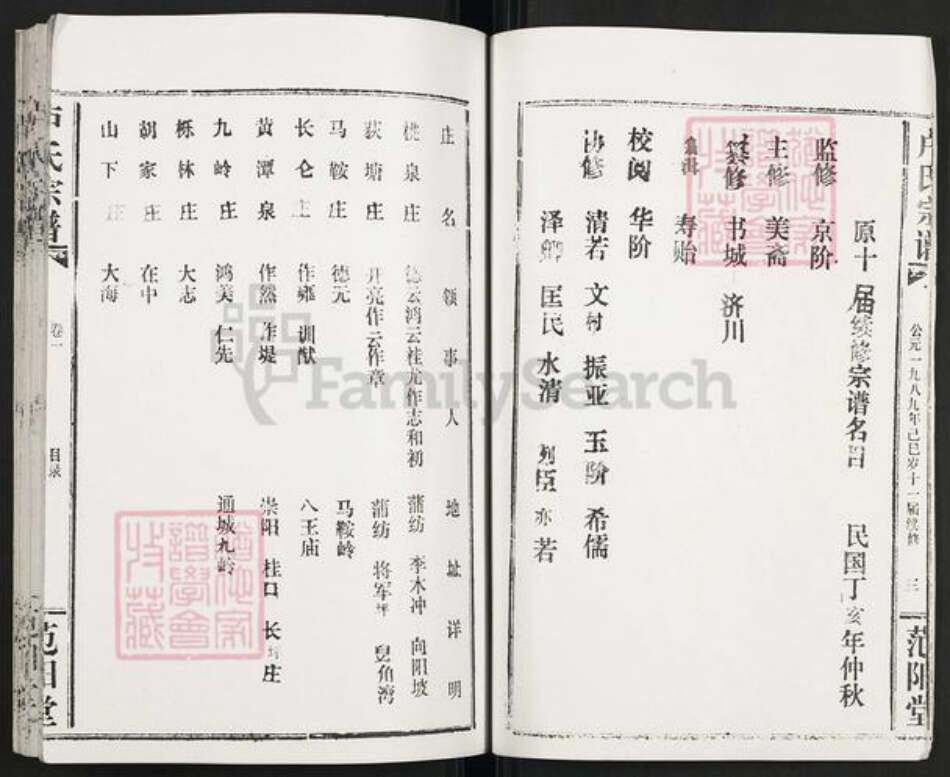 卢氏宗谱
公元一九八九年己巳岁十一届续修 三
范阳堂
原十届续修宗谱名目 民国丁亥年仲秋
监修 京阶
主修 美斋
纂修 书城 济川
编辑 寿贻
校阅 华阶
协修 清若 文村 振亚 玉阶 希儒
泽卿 匡民 水清 列臣 亦若
庄名 领事人 地址详明
桃泉庄 德云鸿云桂龙作志和初 蒲纺 李木冲 向阳坡
荻塘庄 开亮作云作章 蒲纺 将军坪 兕角湾
马鞍庄 德元 马鞍岭
长仑庄 作雍 训猷 八王庙
黄潭泉 作然 作堤 崇阳 桂口 长庄
九岭庄 鸿美 仁先 通城九岭
栎林庄 大志
胡家庄 在中
山下庄 大海
卢氏宗谱
卷一 目录
范阳堂
FamilySearch